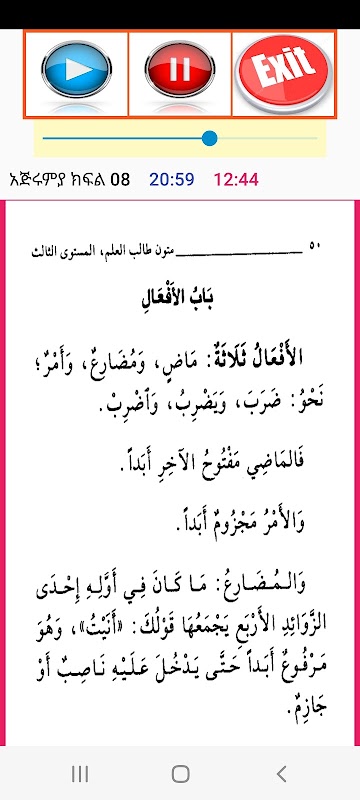 Exit
አጅሩምያ ክፍል 08 20:59 12:44
٥٠ متون طالب العلم، المستوى الثالث
بَابُ الأَفْعَالِ
الأَفْعَالُ ثَلَاثَةٌ: مَاضٍ، وَمُضَارِعٌ، وَأَمْرٌ؛
نَحْوُ: ضَرَبَ، وَيَضْرِبُ، وَٱضْرِبْ.
فَالمَاضِي مَفْتُوحُ الآخِرِ أَبَداً.
وَالأَمْرُ مَجْزُومٌ أَبَداً.
وَالـمُـضَـارِعُ: مَـا كَـانَ فِـي أَوَّلِـهِ إِحْـدَى
الزَّوَائِدِ الأَرْبَعِ يَجْمَعُهَا قَوْلُكَ: «أَنَيْتُ»، وَهُوَ
مَـرْفُـوعٌ أَبَـداً حَـتَّـى يَـدْخُـلَ عَـلَـيْـهِ نَـاصِـبٌ أَوْ
جَازِمٌ.